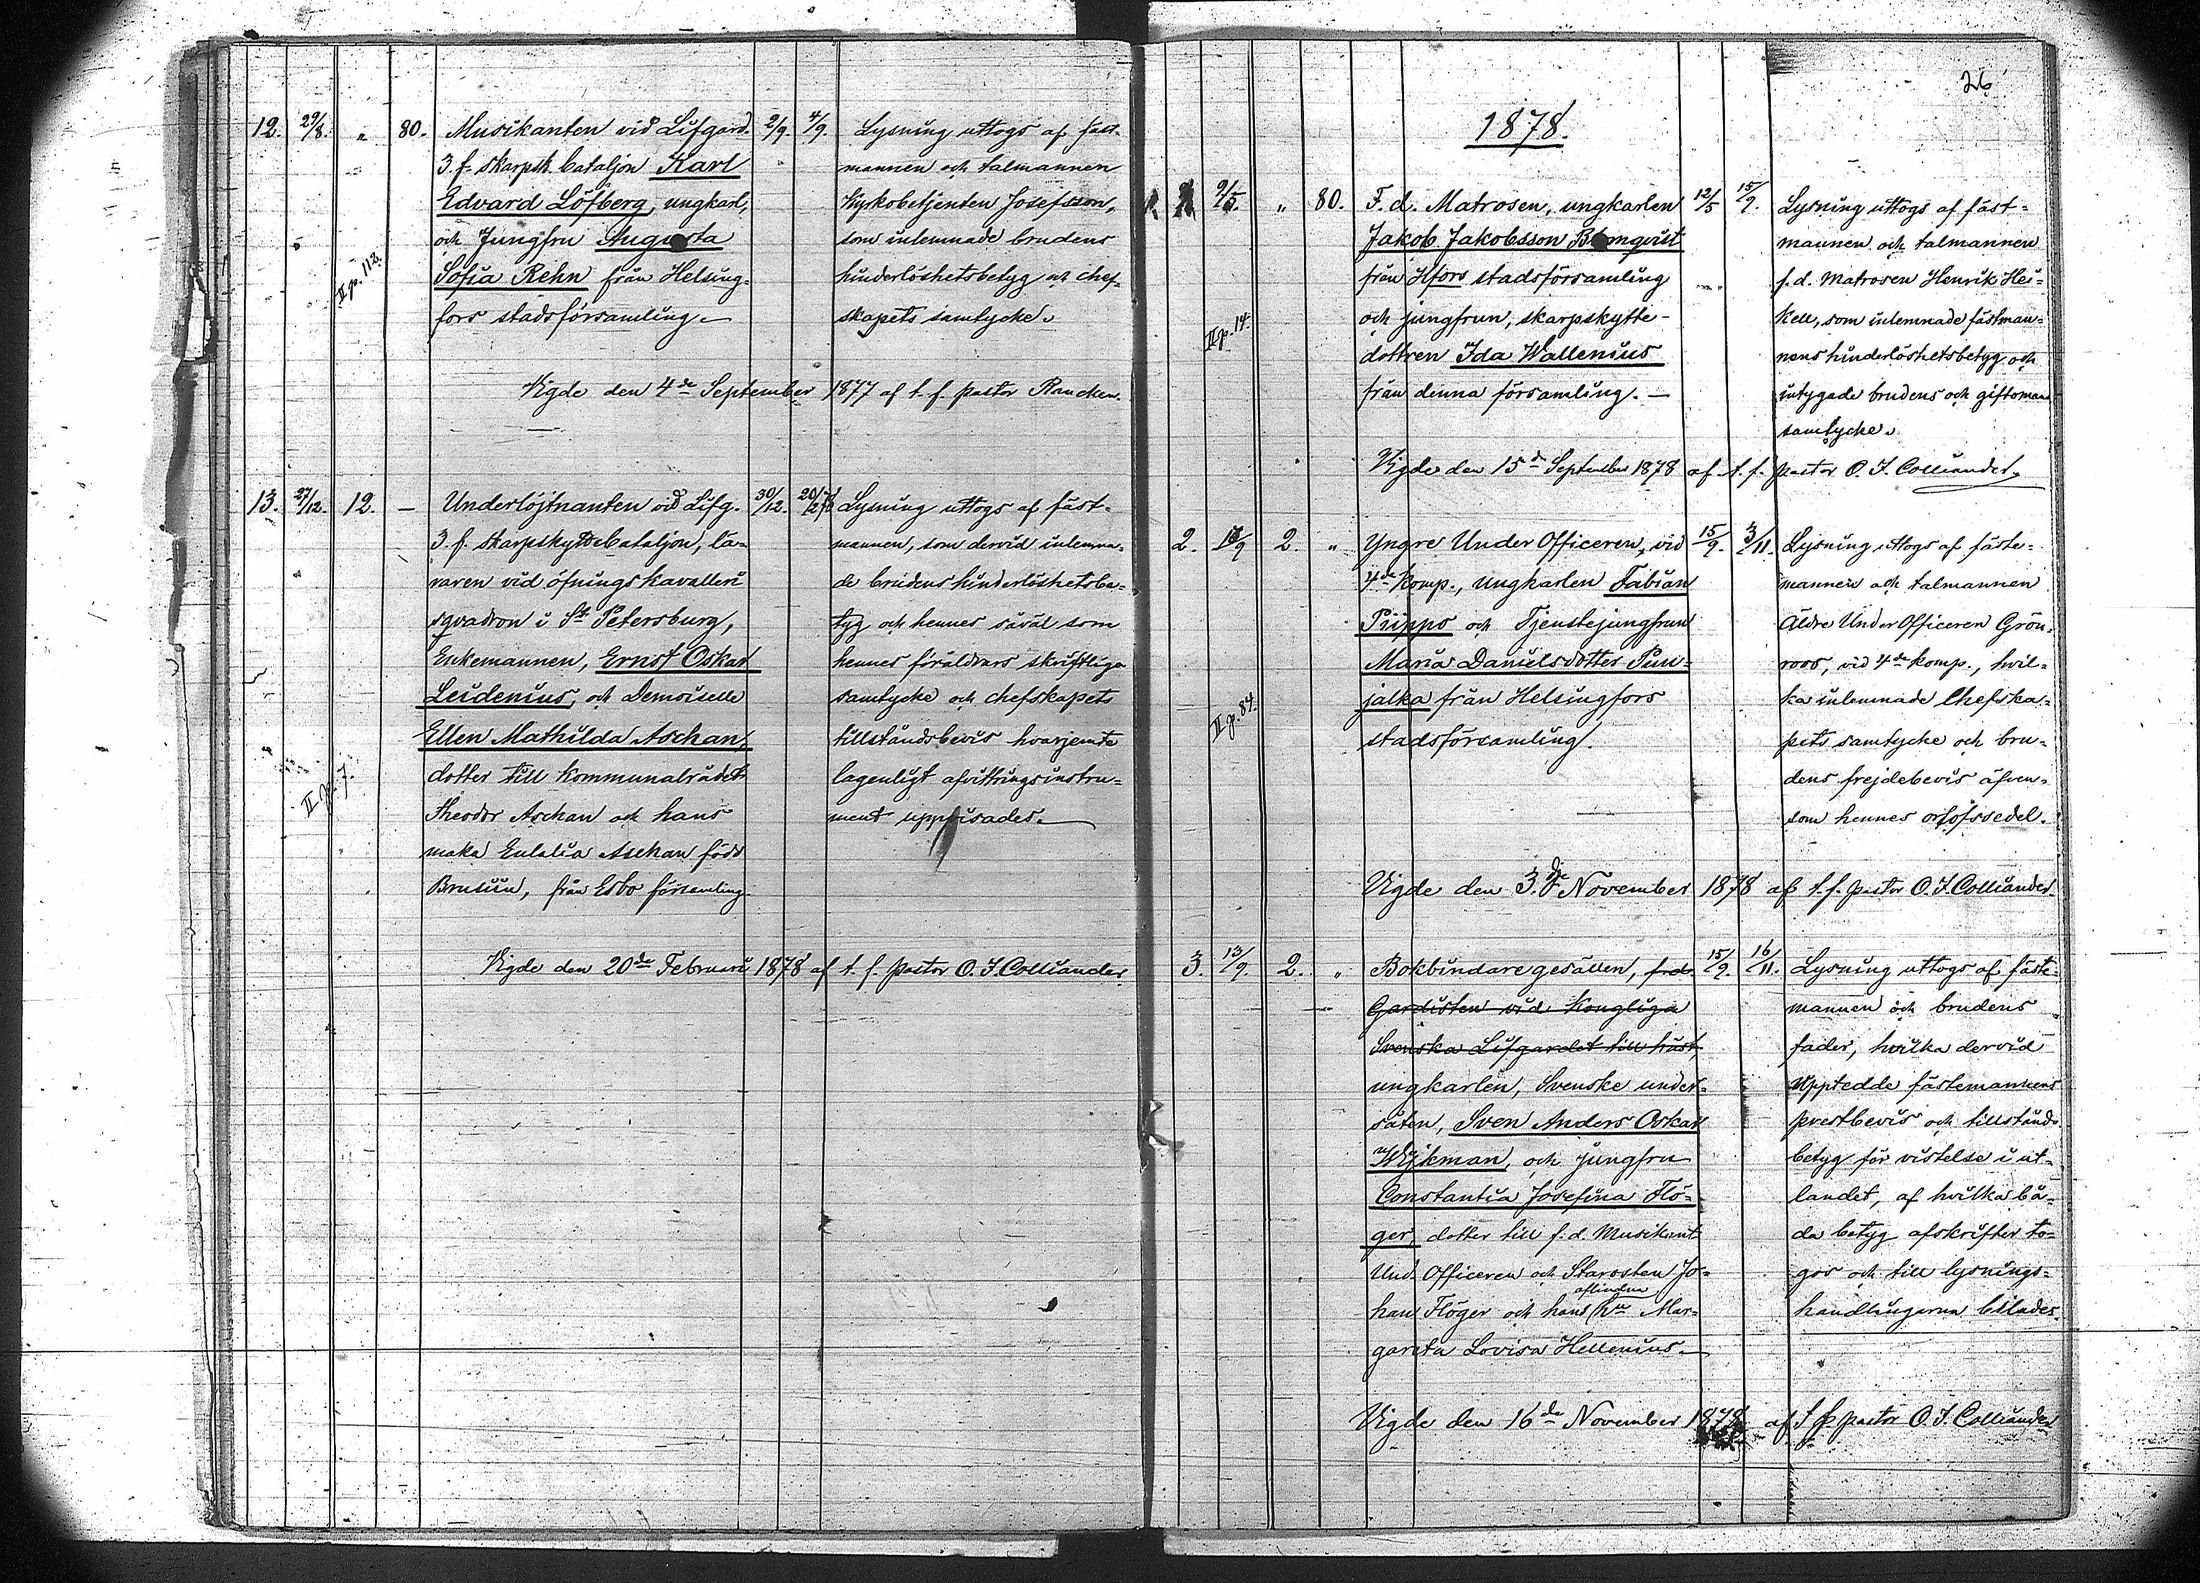 12. 29/8. „ 80. Musikanten vid Lifgard. 2/9. 4/9. Lysning uttogs af fäst-
3. f. skarpsk. bataljon Karl mannen och talmannen
Edvard Löfberg, ungkarl, Kyrkobetjenten Josefsson,
och Jungfru Augusta som inlemnade brudens
Sofia Rehn från Helsing- hinderlöshetsbetyg och chef-
fors stadsförsamling. skapets samtycke.
II p. 118.
Vigde den 4de September 1877 af t. f. pastor Rancken.
13. 27/12. 12. — Underlöjtnanten vid Lifg. 30/12. 20/2 78 Lysning uttogs af fäst-
3. f. skarpskyttebataljon, lä- mannen, som dervid inlemna-
raren vid öfningskavalleri de brudens hinderlöshetsbe-
sqvadron i St Petersburg, tyg och hennes såväl som
Enkemannen, Ernst Oskar hennes föräldrars skriftliga
Leidenius, och Demoiselle samtycke och chefskapets
Ellen Mathilda Aschan, tillståndsbevis hvarjemte
dotter till Kommunalrådet lagenligt afvittringsinstru-
Theodor Aschan och hans ment uppvisades.
maka Eulalia Aschan född
Brusiin, från Esbo församling.
II p. 7.
Vigde den 20de Februari 1878 af t. f. pastor O. I. Colliander.
26
1878.
9/5. „ 80. F. d. Matrosen, ungkarlen 12/5 15/9. Lysning uttogs af fäst-
Jakob Jakobsson Blomqvist mannen och talmannen
från Hfors stadsförsamling f. d. Matrosen Henrik Hei-
och jungfrun, skarpskytte- kell, som inlemnade fästman-
dottren Ida Wallenius nens hinderlöshetsbetyg och
från denna församling. — intygade brudens och giftomans
samtycke.
II p. 14.
Vigde den 15de September 1878 af t. f. pastor O. I. Colliander.
2. /9 2. „ Yngre Under Officeren, vid 15/9. 3/11. Lysning uttogs af fäste-
4de Komp., ungkarlen Fabian mannen och talmannen
Piippo och Tjenstejungfrun Äldre Under Officeren Grön-
Maria Danielsdotter Pun- roos, vid 4de Komp., hvil-
jalka från Helsingfors ka inlemnade Chefska-
stadsförsamling. pets samtycke och bru-
dens frejdebevis äfven-
som hennes orlofssedel.
II p. 84.
Vigde den 3.de November 1878 af t. f. pastor O. I. Colliander.
3. 13/9. 2. „ Bokbindaregesällen, f. d. 15/9. 16/11. Lysning uttogs af fäste-
Gardisten vid Kongliga mannen och brudens
Svenska Lifgardet till häst, fader, hvilka dervid
ungkarlen, Svenske under- uppredde fästemannens
såten, Sven Anders Oskar prestbevis och tillstånds-
Wijkman, och jungfru betyg för vistelse i ut-
Constantia Josefina Flö- landet, af hvilka bå-
ger, dotter till f. d. Musikant da betyg afskrifter to-
Und. Officeren och Starosten Jo- gos och till lysnings-
aflindna
han Flöger och hans hu Mar- handlingarna bilades.
gareta Lovisa Hellenius.
Vigde den 16de November 1878 af t. f. pastor O. I. Colliander